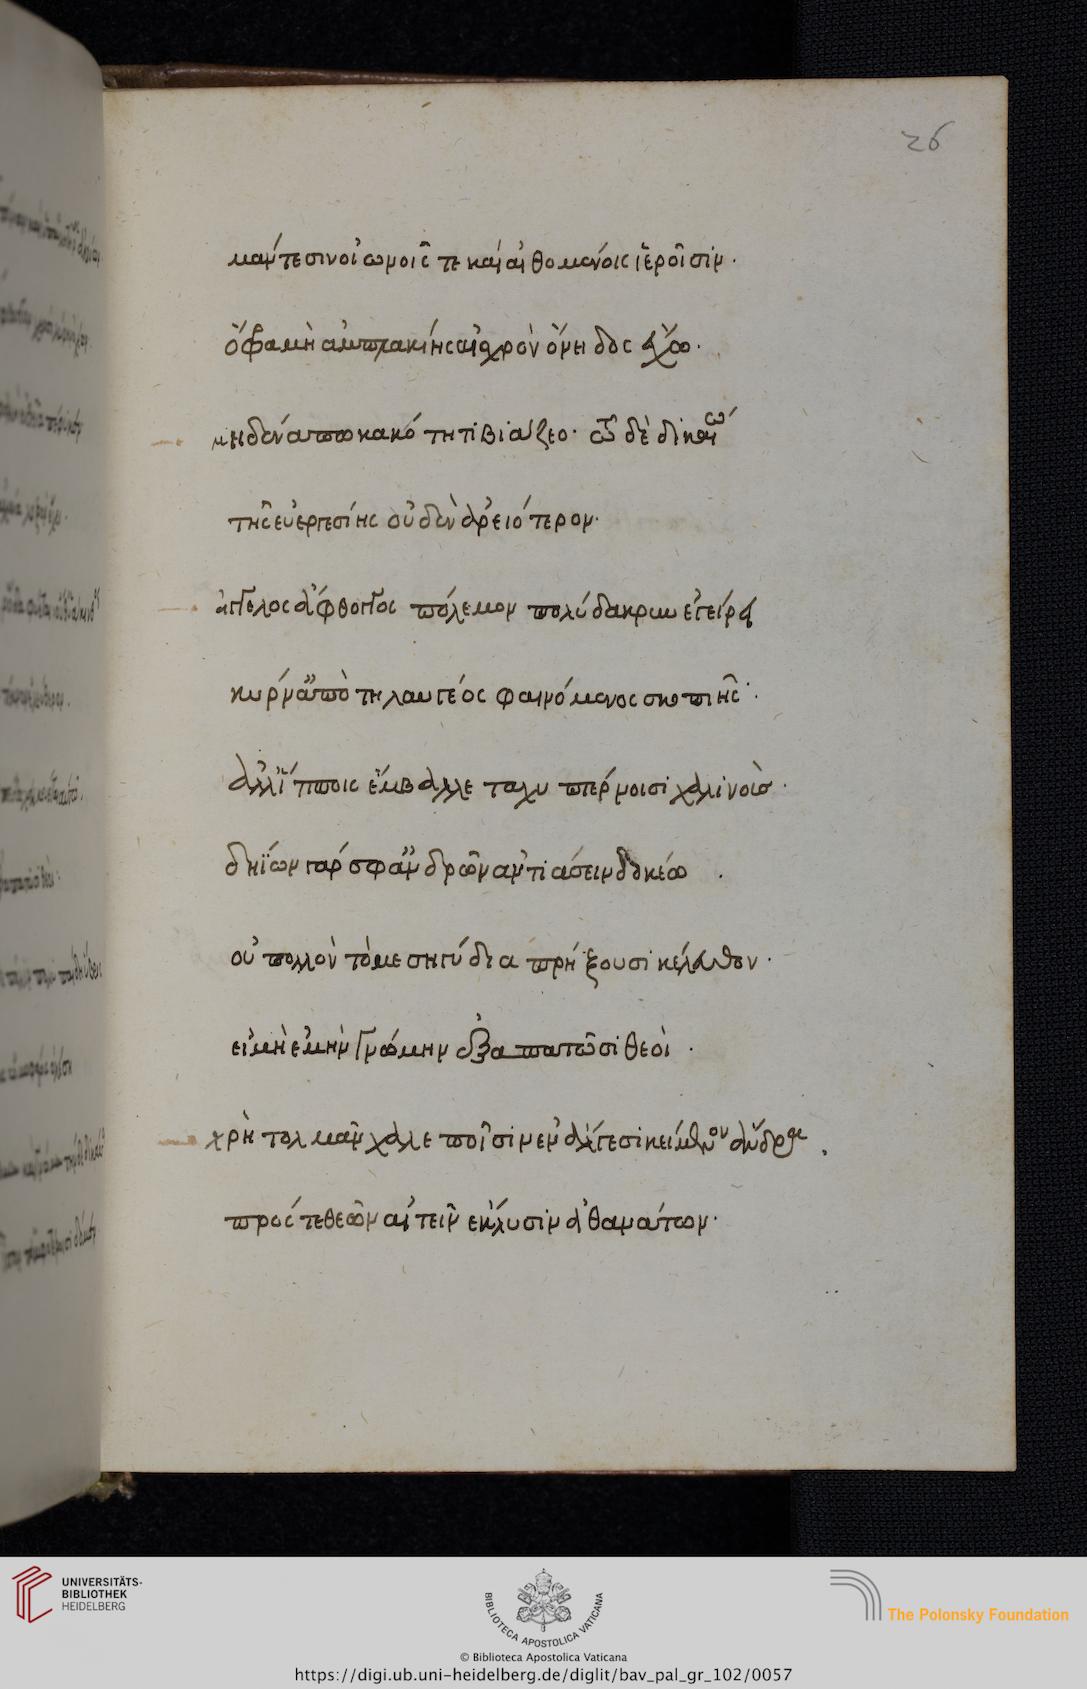 26
μάντεσιν οἰωνοῖς τε καὶ αἰθομένοις ἱεροῖσιν.
ὄφρα μὴ ἀμπλακίης αἰσχρὸν ὄνειδος ἔχω.
μηδένα πω κακότητι βιάζεο· τῷ δὲ δικαίῳ
τῆς εὐεργεσίης οὐδὲν ἀρειότερον.
ἄγγελος ἄφθογγος πόλεμον πολύδακρυν ἐγείρει
κύρν' ἀπὸ τηλαυγέος φαινόμενος σκοπιῆς.
ἀλλ' ἵπποις ἔμβαλλε ταχυπτέρνοισι χαλινούς.
δηΐων γάρ σφ' ἀνδρῶν ἀντιάσειν δοκέω.
οὐ πολλὸν τὸ μεσηγύ διαπρήξουσι κέλευθον.
εἰ μὴ ἐμὴν γνώμην ἐξαπατῶσι θεοί.
χρὴ τολμᾶν χαλεποῖσιν ἐν ἄλγεσι κείμενον ἄνδρα.
πρός τε θεῶν αἰτεῖν ἔκλυσιν ἀθανάτων.
UNIVERSITÄTS-
BIBLIOTHEK
HEIDELBERG
BIBLIOTECA APOSTOLICA VATICANA
The Polonsky Foundation
© Biblioteca Apostolica Vaticana
https://digi.ub.uni-heidelberg.de/diglit/bav_pal_gr_102/0057